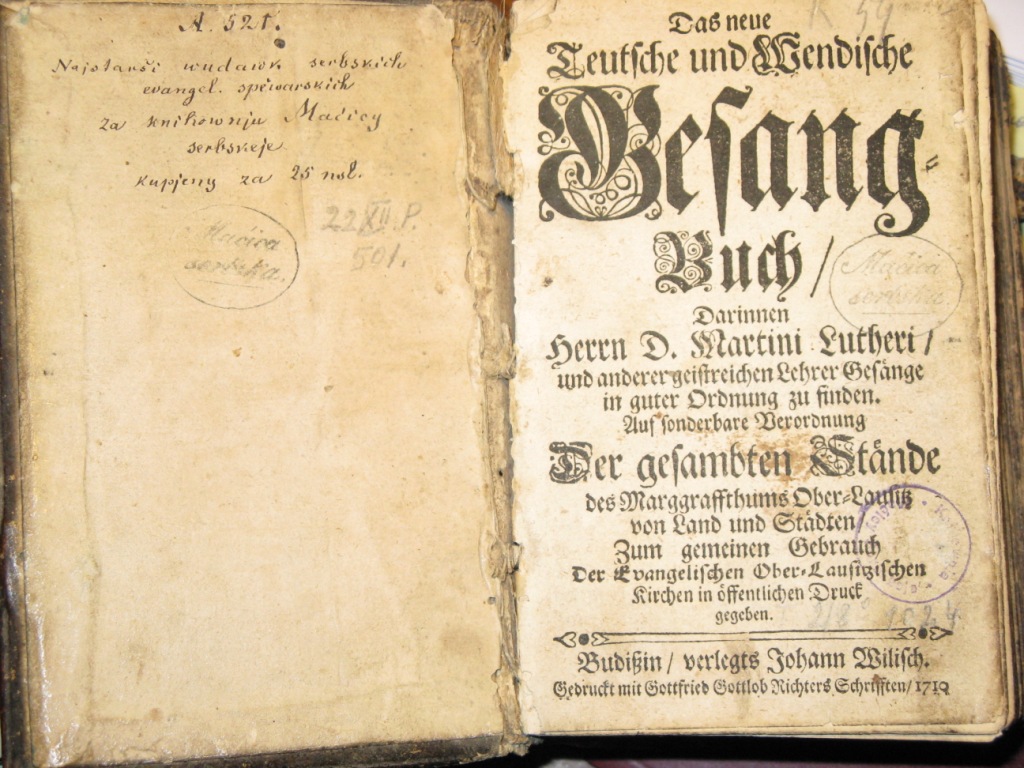 A. 521.
Najstarši wudawk serbskich
evangel. spěwarskich
za knihownju Maćicy
serbskeje
kupjeny za 25 nsl.
Maćica
serbska.
22 XII. P.
501.
K 59
Das neue
Teutsche und Wendische
Gesang-
Buch /
Maćica
serbska.
Darinnen
Herrn D. Martini Lutheri /
und anderer geistreichen Lehrer Gesänge
in guter Ordnung zu finden.
Auf sonderbare Verordnung
Der gesambten Stände
des Marggraffthums Ober-Lausitz
von Land und Städten
Zum gemeinen Gebrauch
Der Evangelischen Ober-Lausitzischen
Kirchen in öffentlichen Druck
gegeben.
Budißin / verlegts Johann Wilisch.
Gedruckt mit Gottfried Gottlob Richters Schrifften / 1710